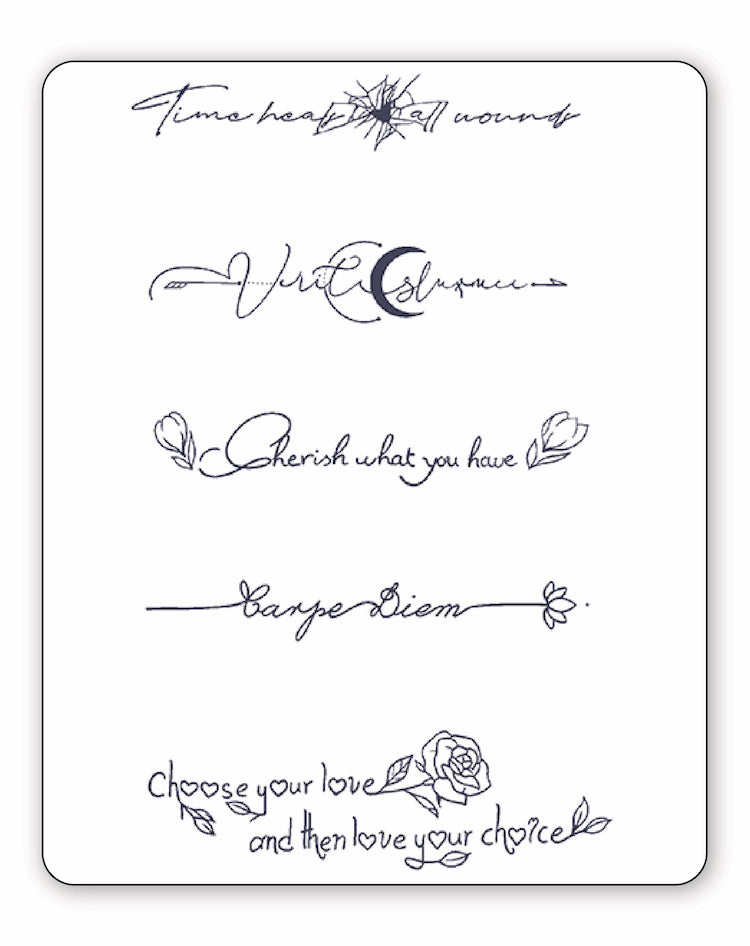 Time heals all wounds
Cherish what you have
Carpe Diem
Choose your love
and then love your choice